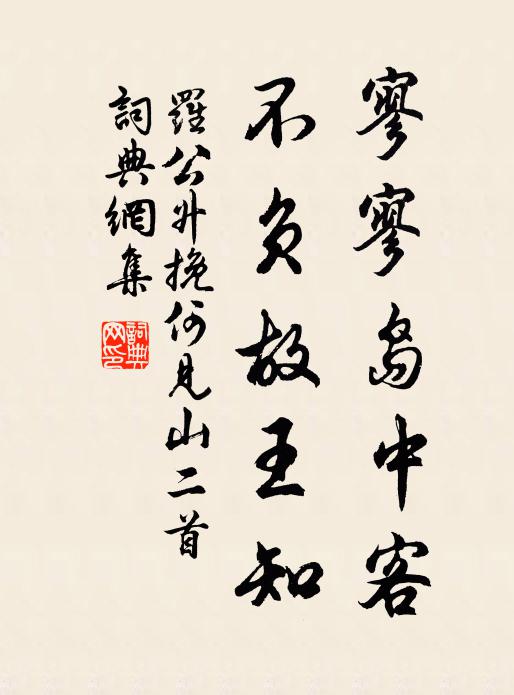 寥寥島中客
不負故王知
羅公升挽何見山二首
詞典網集
詞典
网印